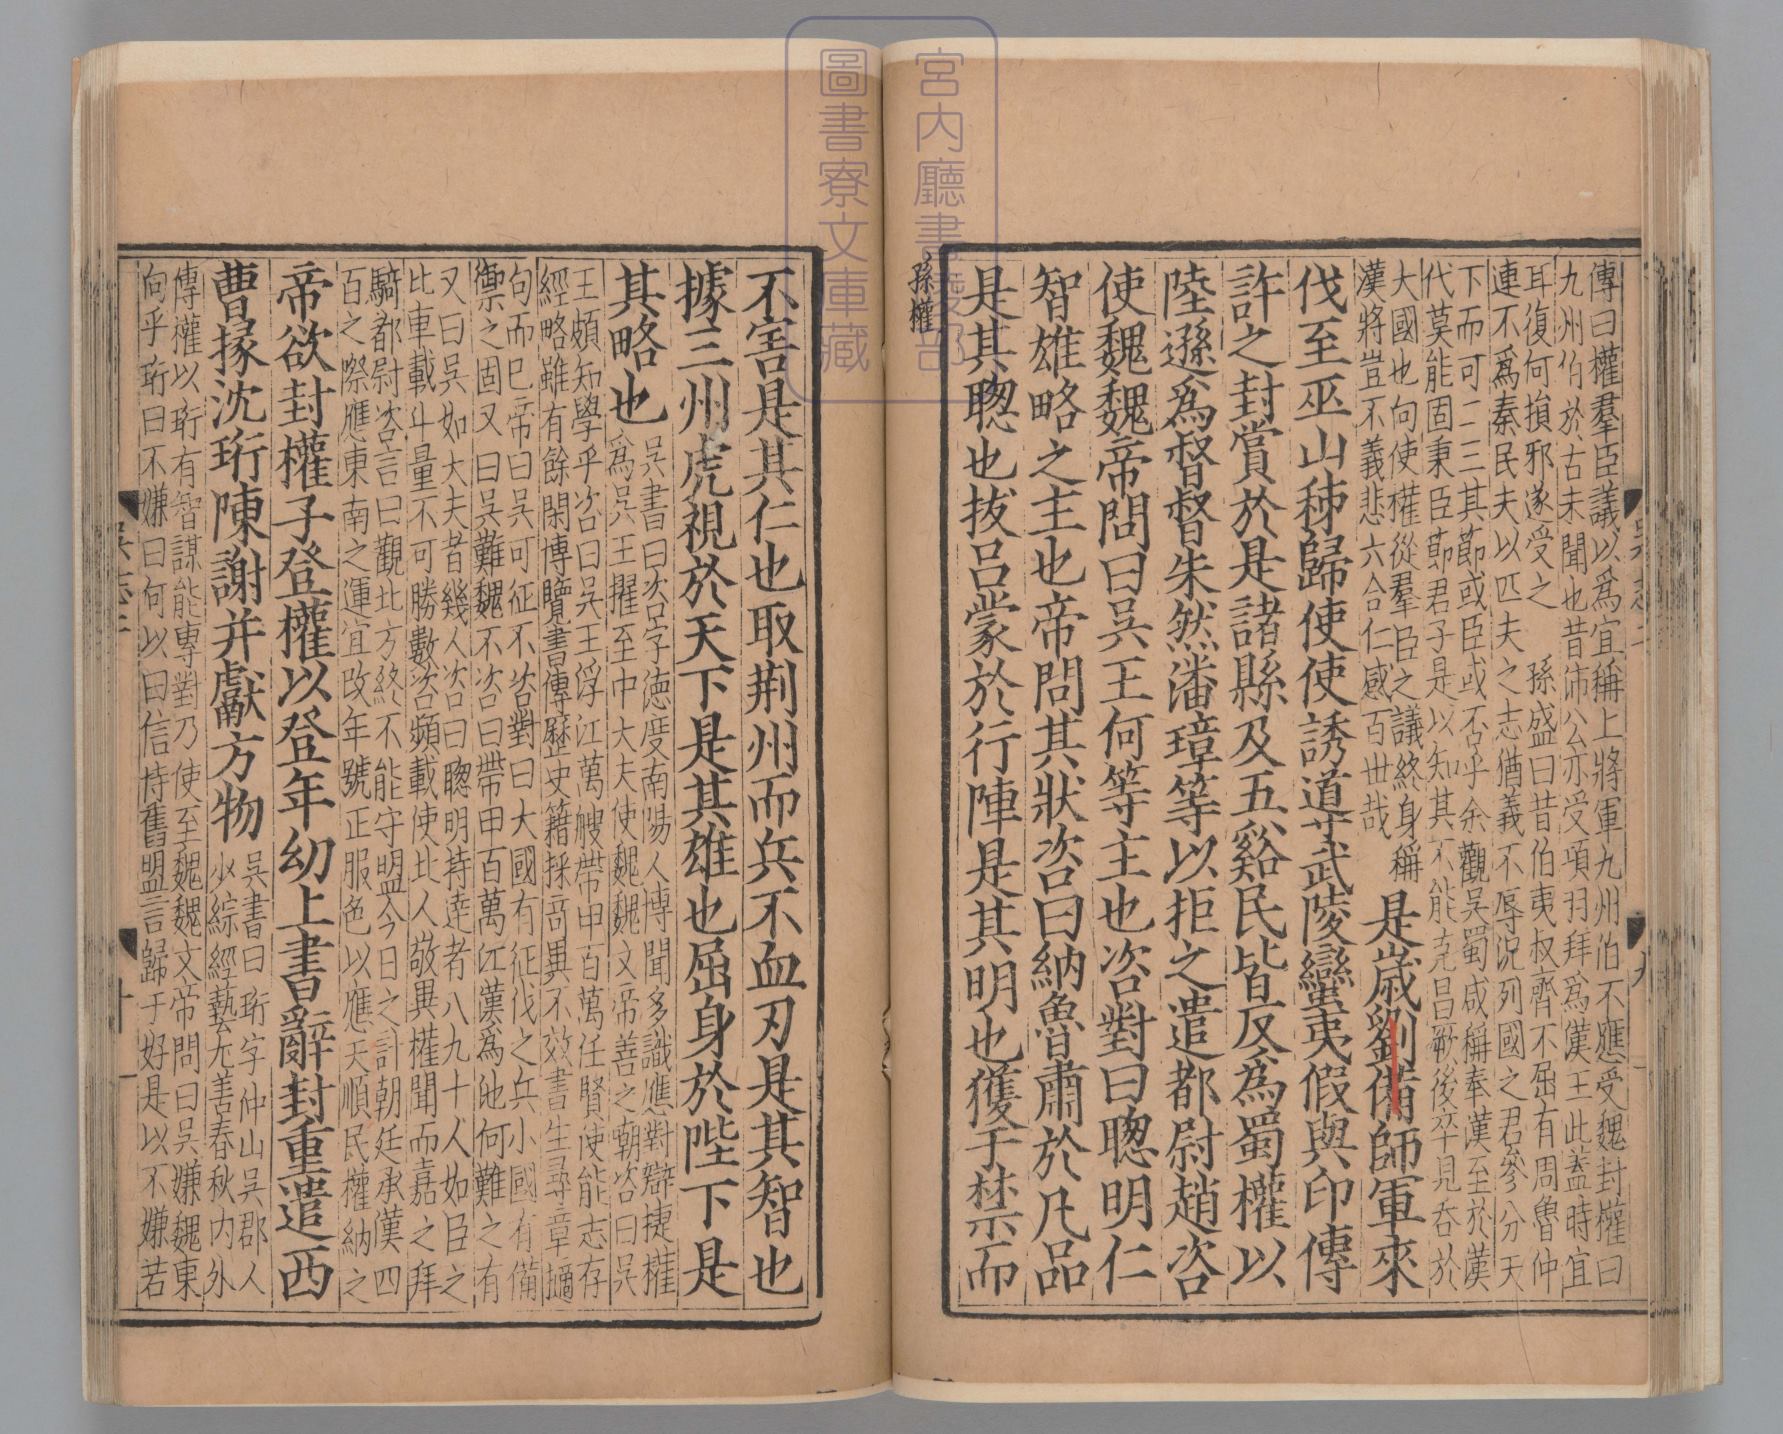 傳曰權羣臣議以爲宜稱上將軍九州伯不應受魏封權曰
九州伯於古未聞也昔沛公亦受項羽拜爲漢王此蓋時宜
耳復何損邪遂受之　孫盛曰昔伯夷叔齊不屈有周魯仲
連不爲秦民夫以匹夫之志猶義不辱況列國之君參分天
下而可二三其節或臣或否乎余觀吳蜀咸稱奉漢至於漢
代莫能固秉臣節君子是以知其不能克昌厥後卒見吞於
大國也向使權從羣臣之議終身稱
漢將豈不義悲六合仁感百世哉
是歲劉備師軍來
伐至巫山秭歸使使誘導武陵蠻夷假與印傳
許之封賞於是諸縣及五谿民皆反爲蜀權以
陸遜爲督督朱然潘璋等以拒之遣都尉趙咨
使魏魏帝問曰吳王何等主也咨對曰聰明仁
智雄略之主也帝問其狀咨曰納魯肅於凡品
是其聰也拔呂蒙於行陣是其明也獲于禁而
孫權
吳志二
九
宮內廳書陵部
圖書寮文庫藏
不害是其仁也取荆州而兵不血刃是其智也
據三州虎視於天下是其雄也屈身於陛下是
其略也
吳書曰咨字德度南陽人博聞多識應對辯捷權
爲吳王擢至中大夫使魏魏文帝善之嘲咨曰吳
王頗知學乎咨曰吳王浮江萬艘帶甲百萬任賢使能志存
經略雖有餘閑博覽書傳歷史籍採奇異不效書生尋章摘
句而已帝曰吳可征不咨對曰大國有征伐之兵小國有備
禦之固又曰吳難魏不咨曰帶甲百萬江漢爲池何難之有
又曰吳如大夫者幾人咨曰聰明特達者八九十人如臣之
比車載斗量不可勝數咨頻載使北人敬異權聞而嘉之拜
騎都尉咨言曰觀北方終不能守盟今日之計朝廷承漢四
百之際應東南之運宜改年號正服色以應天順民權納之
帝欲封權子登權以登年幼上書辭封重遣西
曹掾沈珩陳謝并獻方物
吳書曰珩字仲山吳郡人
少綜經藝尤善春秋內外
傳權以珩有智謀能專對乃使至魏魏文帝問曰吳嫌魏東
向乎珩曰不嫌曰何以曰信恃舊盟言歸于好是以不嫌若
吳志二
十